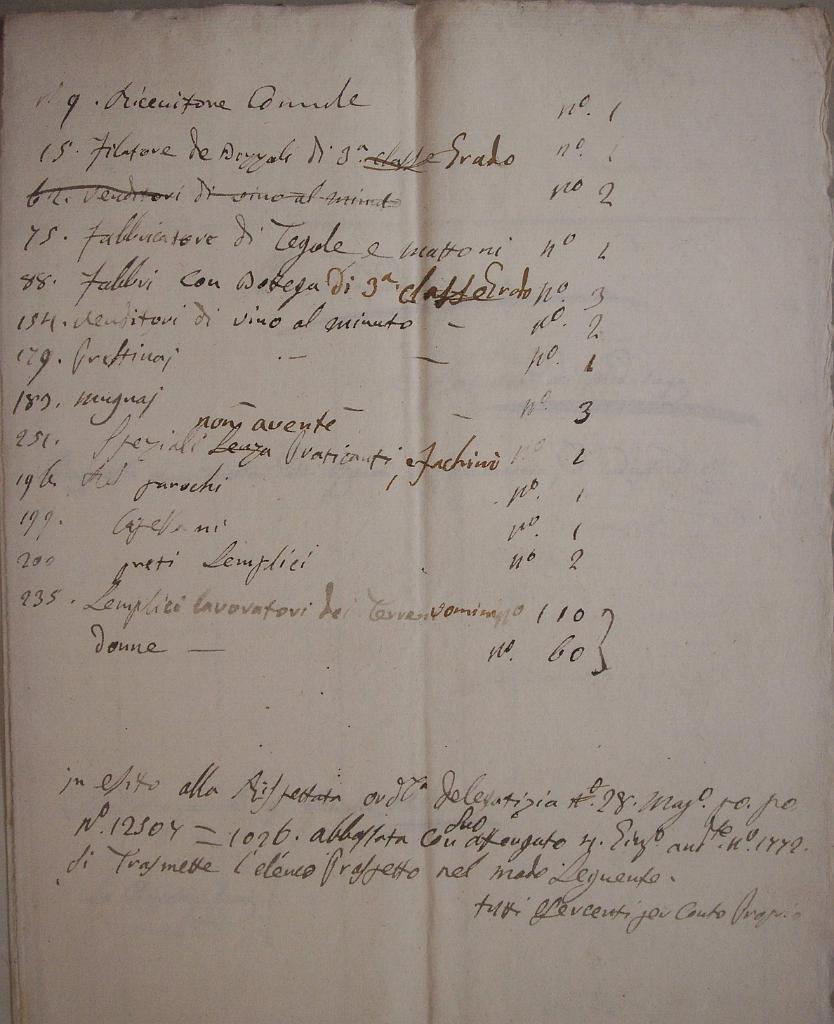 9. Ricevitore Comunale n.º 1
15. Filatore de Bozzoli di 3.ª classe Grado n.º 1
62. Venditori di vino al minuto nº 2
75. Fabbricatore di Tegole e mattoni nº 1
88. Fabbri con Botega di 3.ª classe Grado nº 3
154. Venditori di vino al minuto – nº. 2
179. Prestinaj – – nº. 1
183. mugnaj – nº. 3
non avente
251. Speziali senza Praticanti, e fachini nº 1
196. parochi nº. 1
199. Capellani nº. 1
200 preti Semplici nº 2
235. Semplici lavoratori dei Terreni uomini nº 110
donne — nº. 60
in esito alla Rispettata ord.ª delegatizia 28. Mag.º po. po.
Nº. 12507 = 1026. abbassata con Suo nº. 1772.
si Trasmette l'elenco Prospetto nel modo Seguente.
tutti esercenti per Conto Proprio